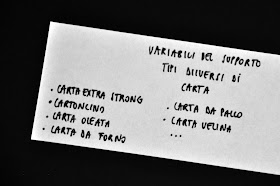 VARIABILI DEL SUPPORTO
TIPI DIVERSI DI
CARTA
• CARTA EXTRA STRONG
• CARTONCINO
• CARTA OLEATA
• CARTA DA FORNO
• CARTA DA PACCO
• CARTA VELINA
...